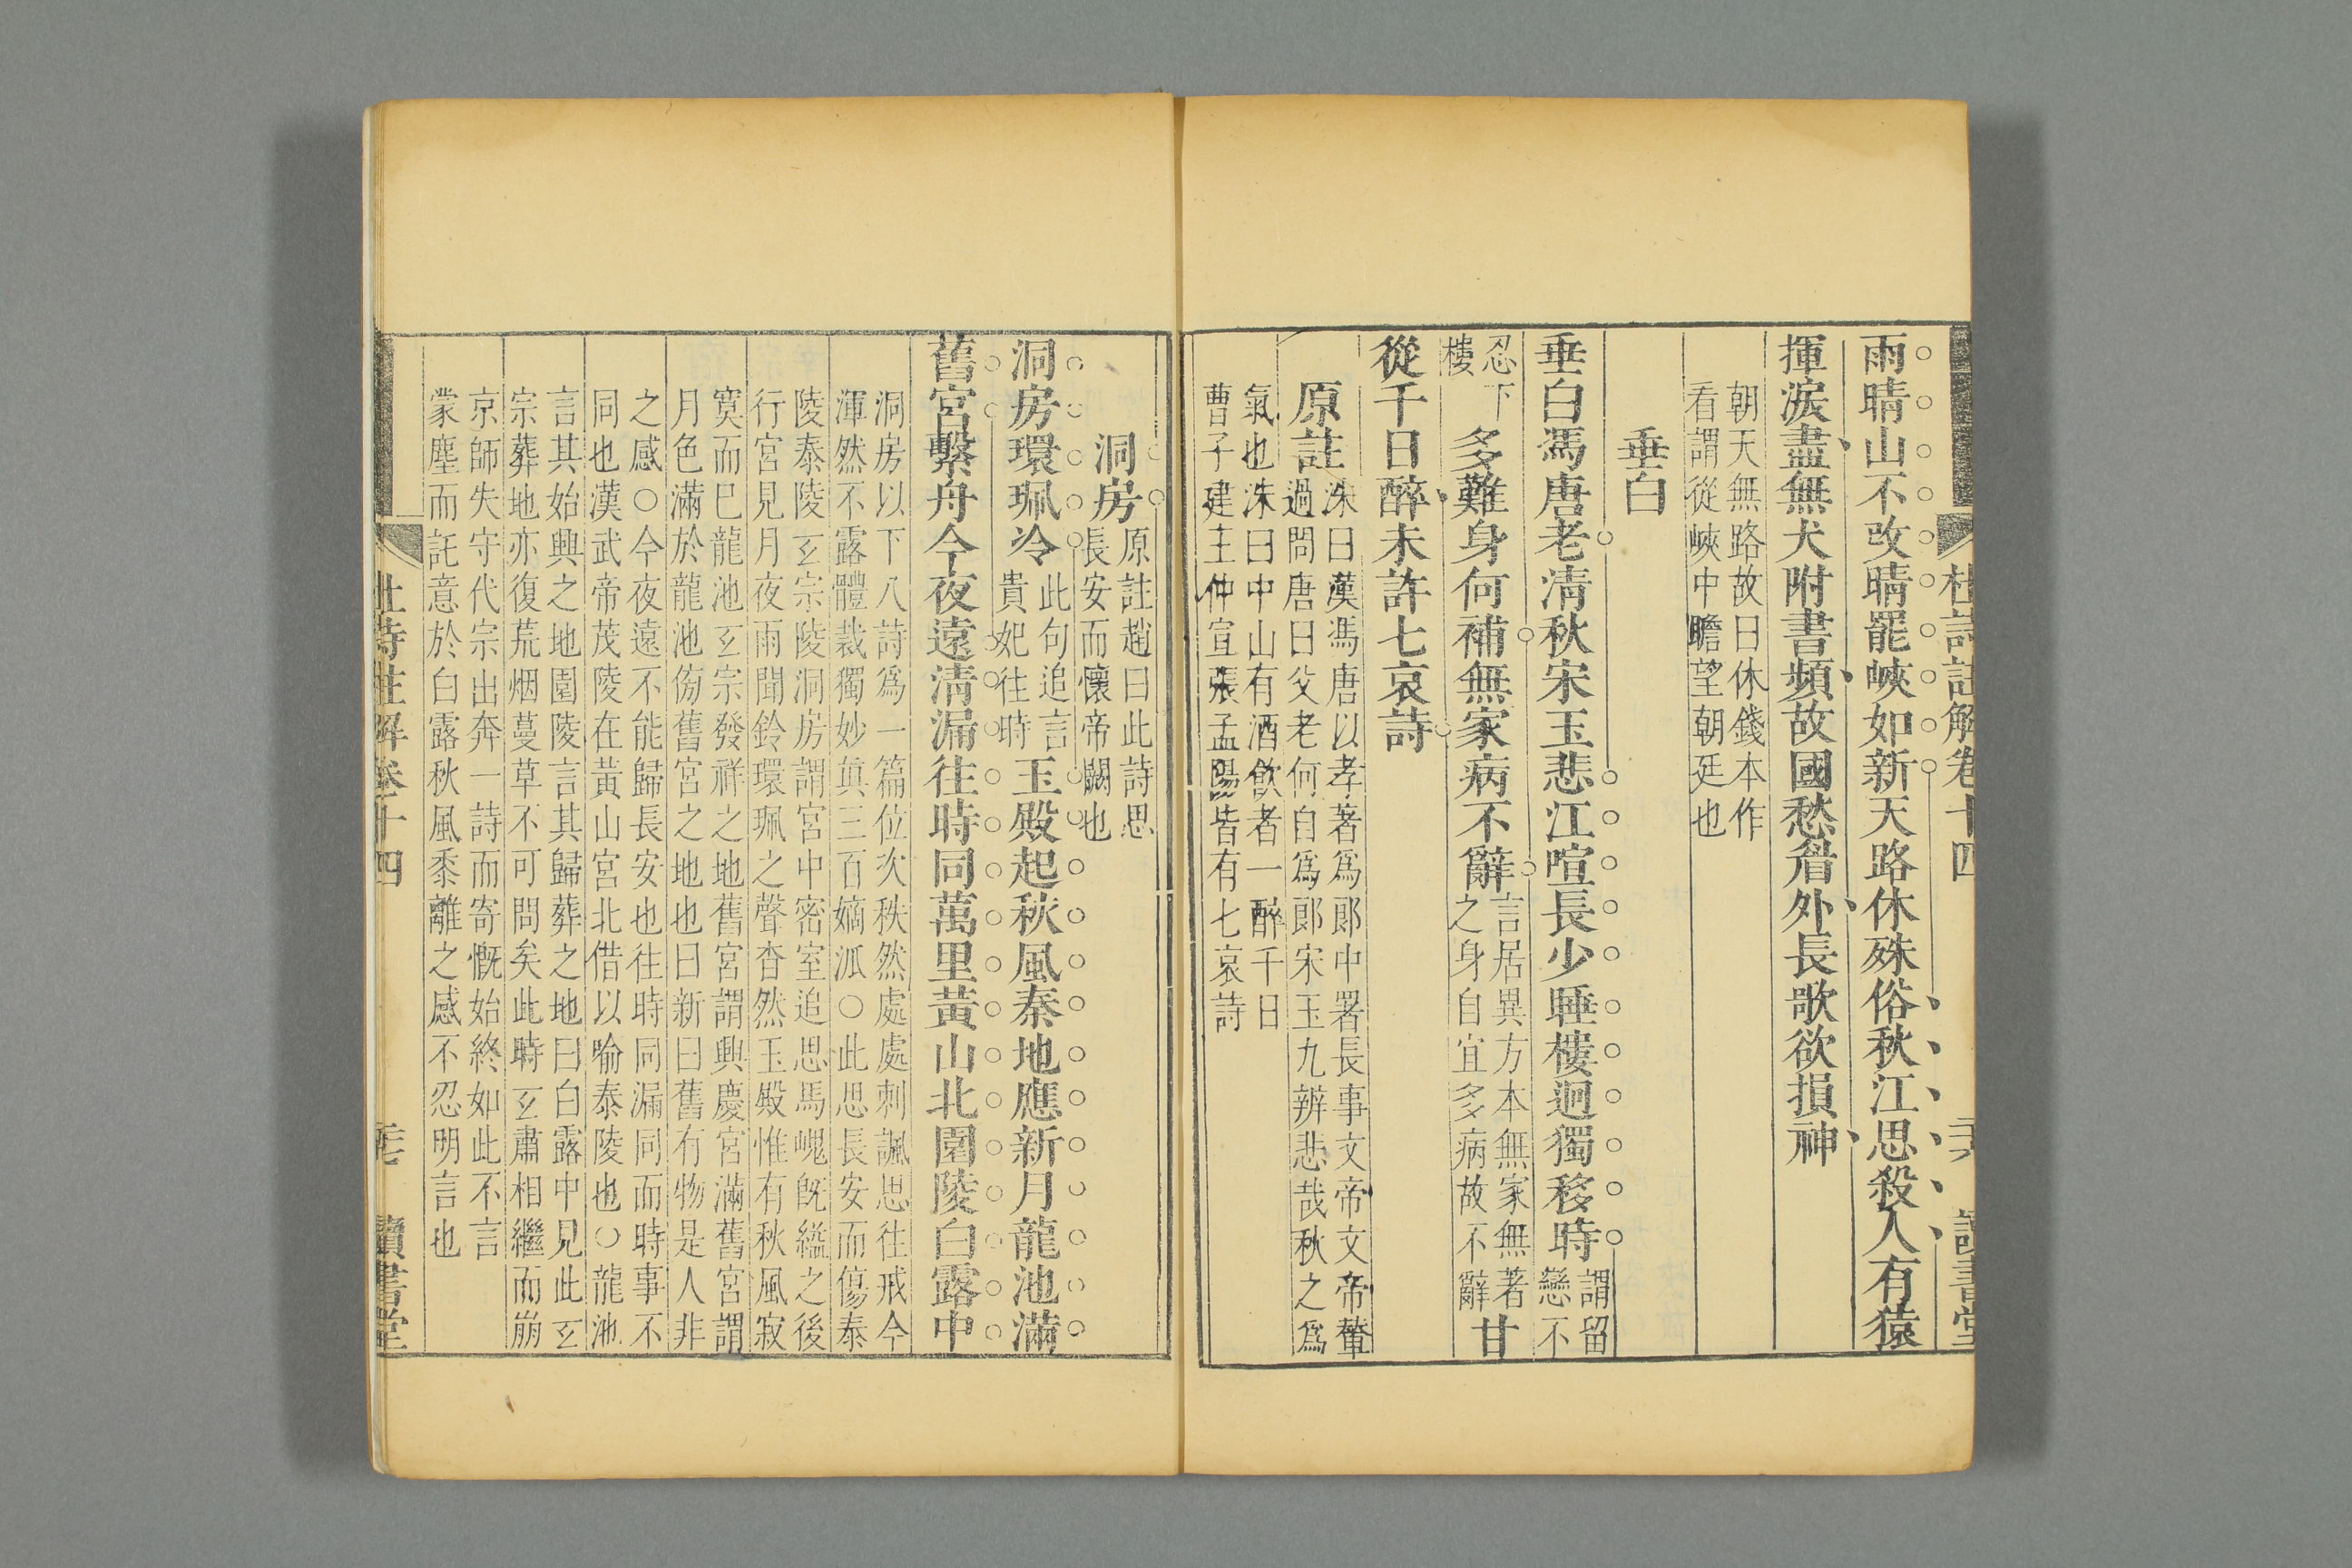 杜詩註解卷十四 二六 讀書堂
雨晴山不改晴罷峽如新天路休殊俗秋江思殺人有猿
揮淚盡無犬附書頻故國愁眉外長歌欲損神
朝天無路故曰休錢本作
看謂從峽中瞻望朝廷也
垂白
垂白馮唐老清秋宋玉悲江喧長少睡樓迥獨移時謂留戀不
忍下樓多難身何補無家病不辭言居異方本無家無著之身自宜多病故不辭甘
從千日醉未許七哀詩
原註洙曰漢馮唐以孝著為郎中署長事文帝文帝輦過問唐曰父老何自為郎宋玉九辨悲哉秋之為
氣也洙曰中山有酒飲者一醉千日
曹子建王仲宣張孟陽皆有七哀詩
洞房原註趙曰此詩思長安而懷帝闕也
洞房環珮冷此句追言貴妃往時玉殿起秋風秦地應新月龍池滿
舊宮繫舟今夜遠清漏往時同萬里黃山北園陵白露中
洞房以下八詩為一篇位次秩然處處刺諷思往戒今
渾然不露體裁獨妙眞三百嫡派○此思長安而傷泰
陵泰陵玄宗陵洞房謂宮中密室追思馬嵬旣縊之後
行宮見月夜雨聞鈴環珮之聲杳然玉殿惟有秋風寂
寞而已龍池玄宗發祥之地舊宮謂興慶宮滿舊宮謂
月色滿於龍池傍舊宮之地也曰新曰舊有物是人非
之感○今夜遠不能歸長安也往時同漏同而時事不
同也漢武帝茂陵在黃山宮北借以喻泰陵也○龍池
言其始興之地園陵言其歸葬之地曰白露中見此玄
宗葬地亦復荒烟蔓草不可問矣此時玄肅相繼而崩
京師失守代宗出奔一詩而寄慨始終如此不言
蒙塵而託意於白露秋風黍離之感不忍明言也
杜詩註解卷十四 二七 讀書堂